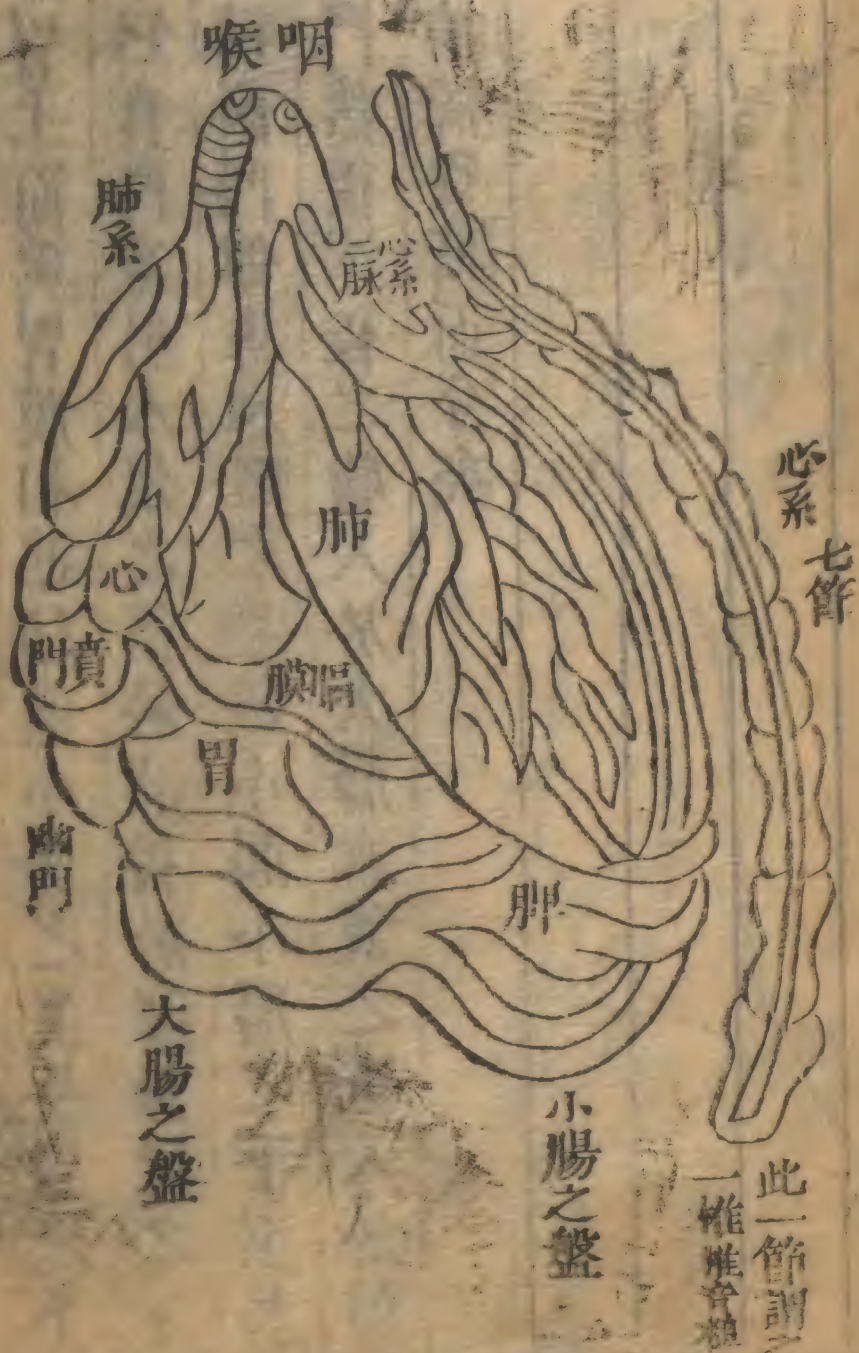 咽喉
肺系
心系
二脉
心系
七節
肺
心
賁門
膈膜
胃
幽門
脾
大腸之盤
小腸之盤
此一節謂之
一惟惟音